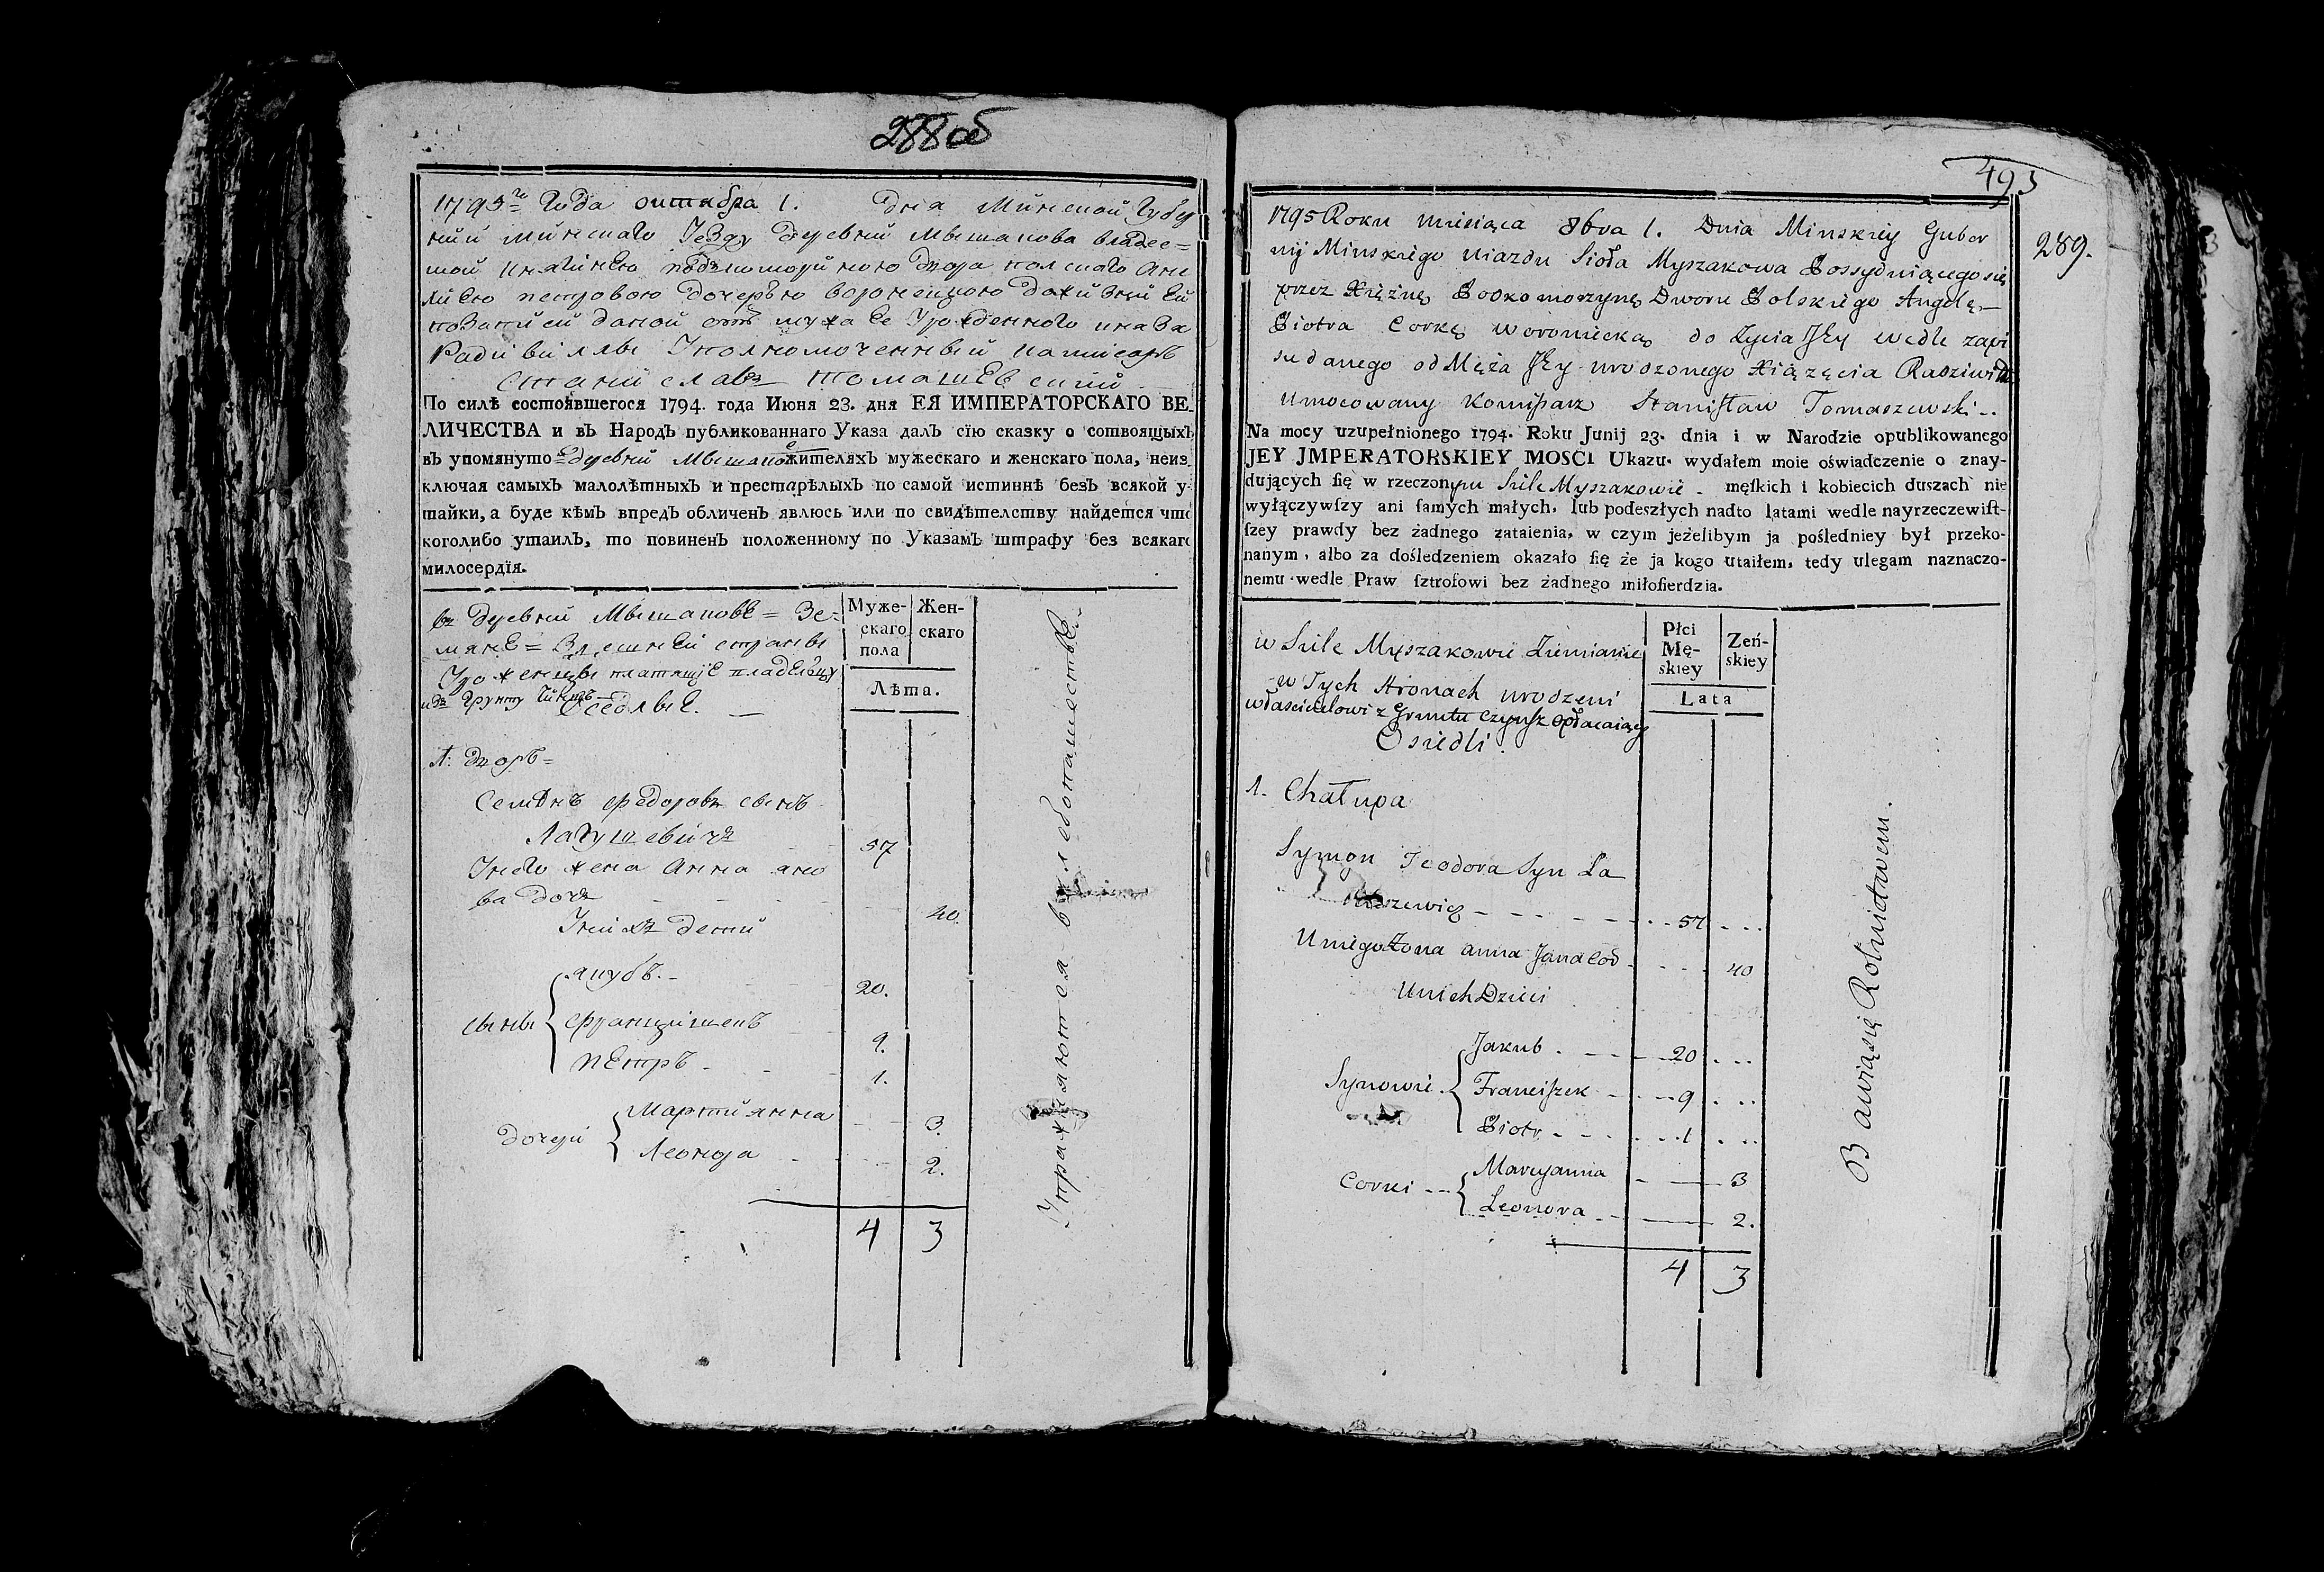 288 об
1795го Года октября 1. дня Минской Губер
нии Минского Уезду деревни Мышакова владее=
мой Княгинею подкоморийною двора полского Анг
лиею петровою дочерью воронецкою до живныи Ей
по записи даной отъ мужа Ее Урожденного князя
Радивилла Уполномоченный комисаръ
Станиславъ Томашевский
По силѣ состоявшегося 1794. года Июня 23. дня ЕЯ ИМПЕРАТОРСКАГО ВЕ-
ЛИЧЕСТВА и въ Народъ публикованнаго Указа далъ сїю сказку о сотвоящихъ
въ упомянуто деревни Мышакова жителяхъ мужескаго и женскаго пола, неиз-
ключая самыхъ малолѣтныхъ и престарѣлыхъ по самой истиннѣ безъ всякой у-
тайки, а буде кѣмъ впредъ обличенъ явлюсь или по свидѣтелству найдется что
коголибо утаилъ, то повиненъ положенному по Указамъ штрафу без всякаго
милосердїя.
въ деревни Мышаковѣ = Зе-
мяне = Здешней страны
Уроженцы платящие владельцу
изъ грунту чиншъ
Оседлые. —
Муже-
скаго
пола
Жен-
скаго
Лѣта.
1: дворъ =
Семѣнъ Федоровъ сынъ
Лагушевичъ 57
У него жена Анна яно
ва дочъ 40
У нихъ дети
сыны
якубъ. 20.
Францишекъ 9.
петръ 1.
дочери
Мартианна 3.
Леонора 2.
4 3
Упражняются в хлебопашестве.
495
289.
1795 Roku miesiąca 8bra 1. Dnia Minskiey Guber
nij Minskiego uiazdu Sioła Myszakowa Possyduiącego się
przez Xiężnę Podkomorzynę Dworu Polskiego Angelę
Piotra Corkę woroniecką do Życia Jey wedle zapi
su danego od Męża Jey urodzonego Xiążęcia Radziwiłła
Umocowany Komisarz Stanisław Tomaszewski..
Na mocy uzupełnionego 1794. Roku Junij 23. dnia i w Narodzie opublikowanego
JEY JMPERATORSKIEY MOSCI Ukazu. wydałem moie oświadczenie o znay-
dujących ſię w rzeczonym Siele Myszakowie - męſkich i kobiecich duszach nie
wyłączywſzy ani ſamych małych, lub podeszłych nadto latami wedle nayrzeczewiſt-
ſzey prawdy bez żadnego zataienia, w czym jeżelibym ja poſledniey był przeko-
nanym, albo za doſledzeniem okazało ſię że ja kogo utaiłem, tedy ulegam naznaczo-
nemu wedle Praw ſztrofowi bez żadnego miłoſierdzia.
w Siele Myszakowie Ziemianie
w Tych stronach urodzeni
właścicielowi z Gruntu czynsz opłacaiący
Osiedli.
Płci
Mę-
skiey
Zeń-
skiey
Lata
1. Chałupa
Symon Teodora Syn La
szewicz 57
U niego Zona anna Jana Cod 40
U nich Dzieci
Synowie
Jakub 20
Franciſzek 9
Piotr 1
Corki
Maryanna 3
Leonora 2.
4 3
Bawiąsię Rolnictwem.